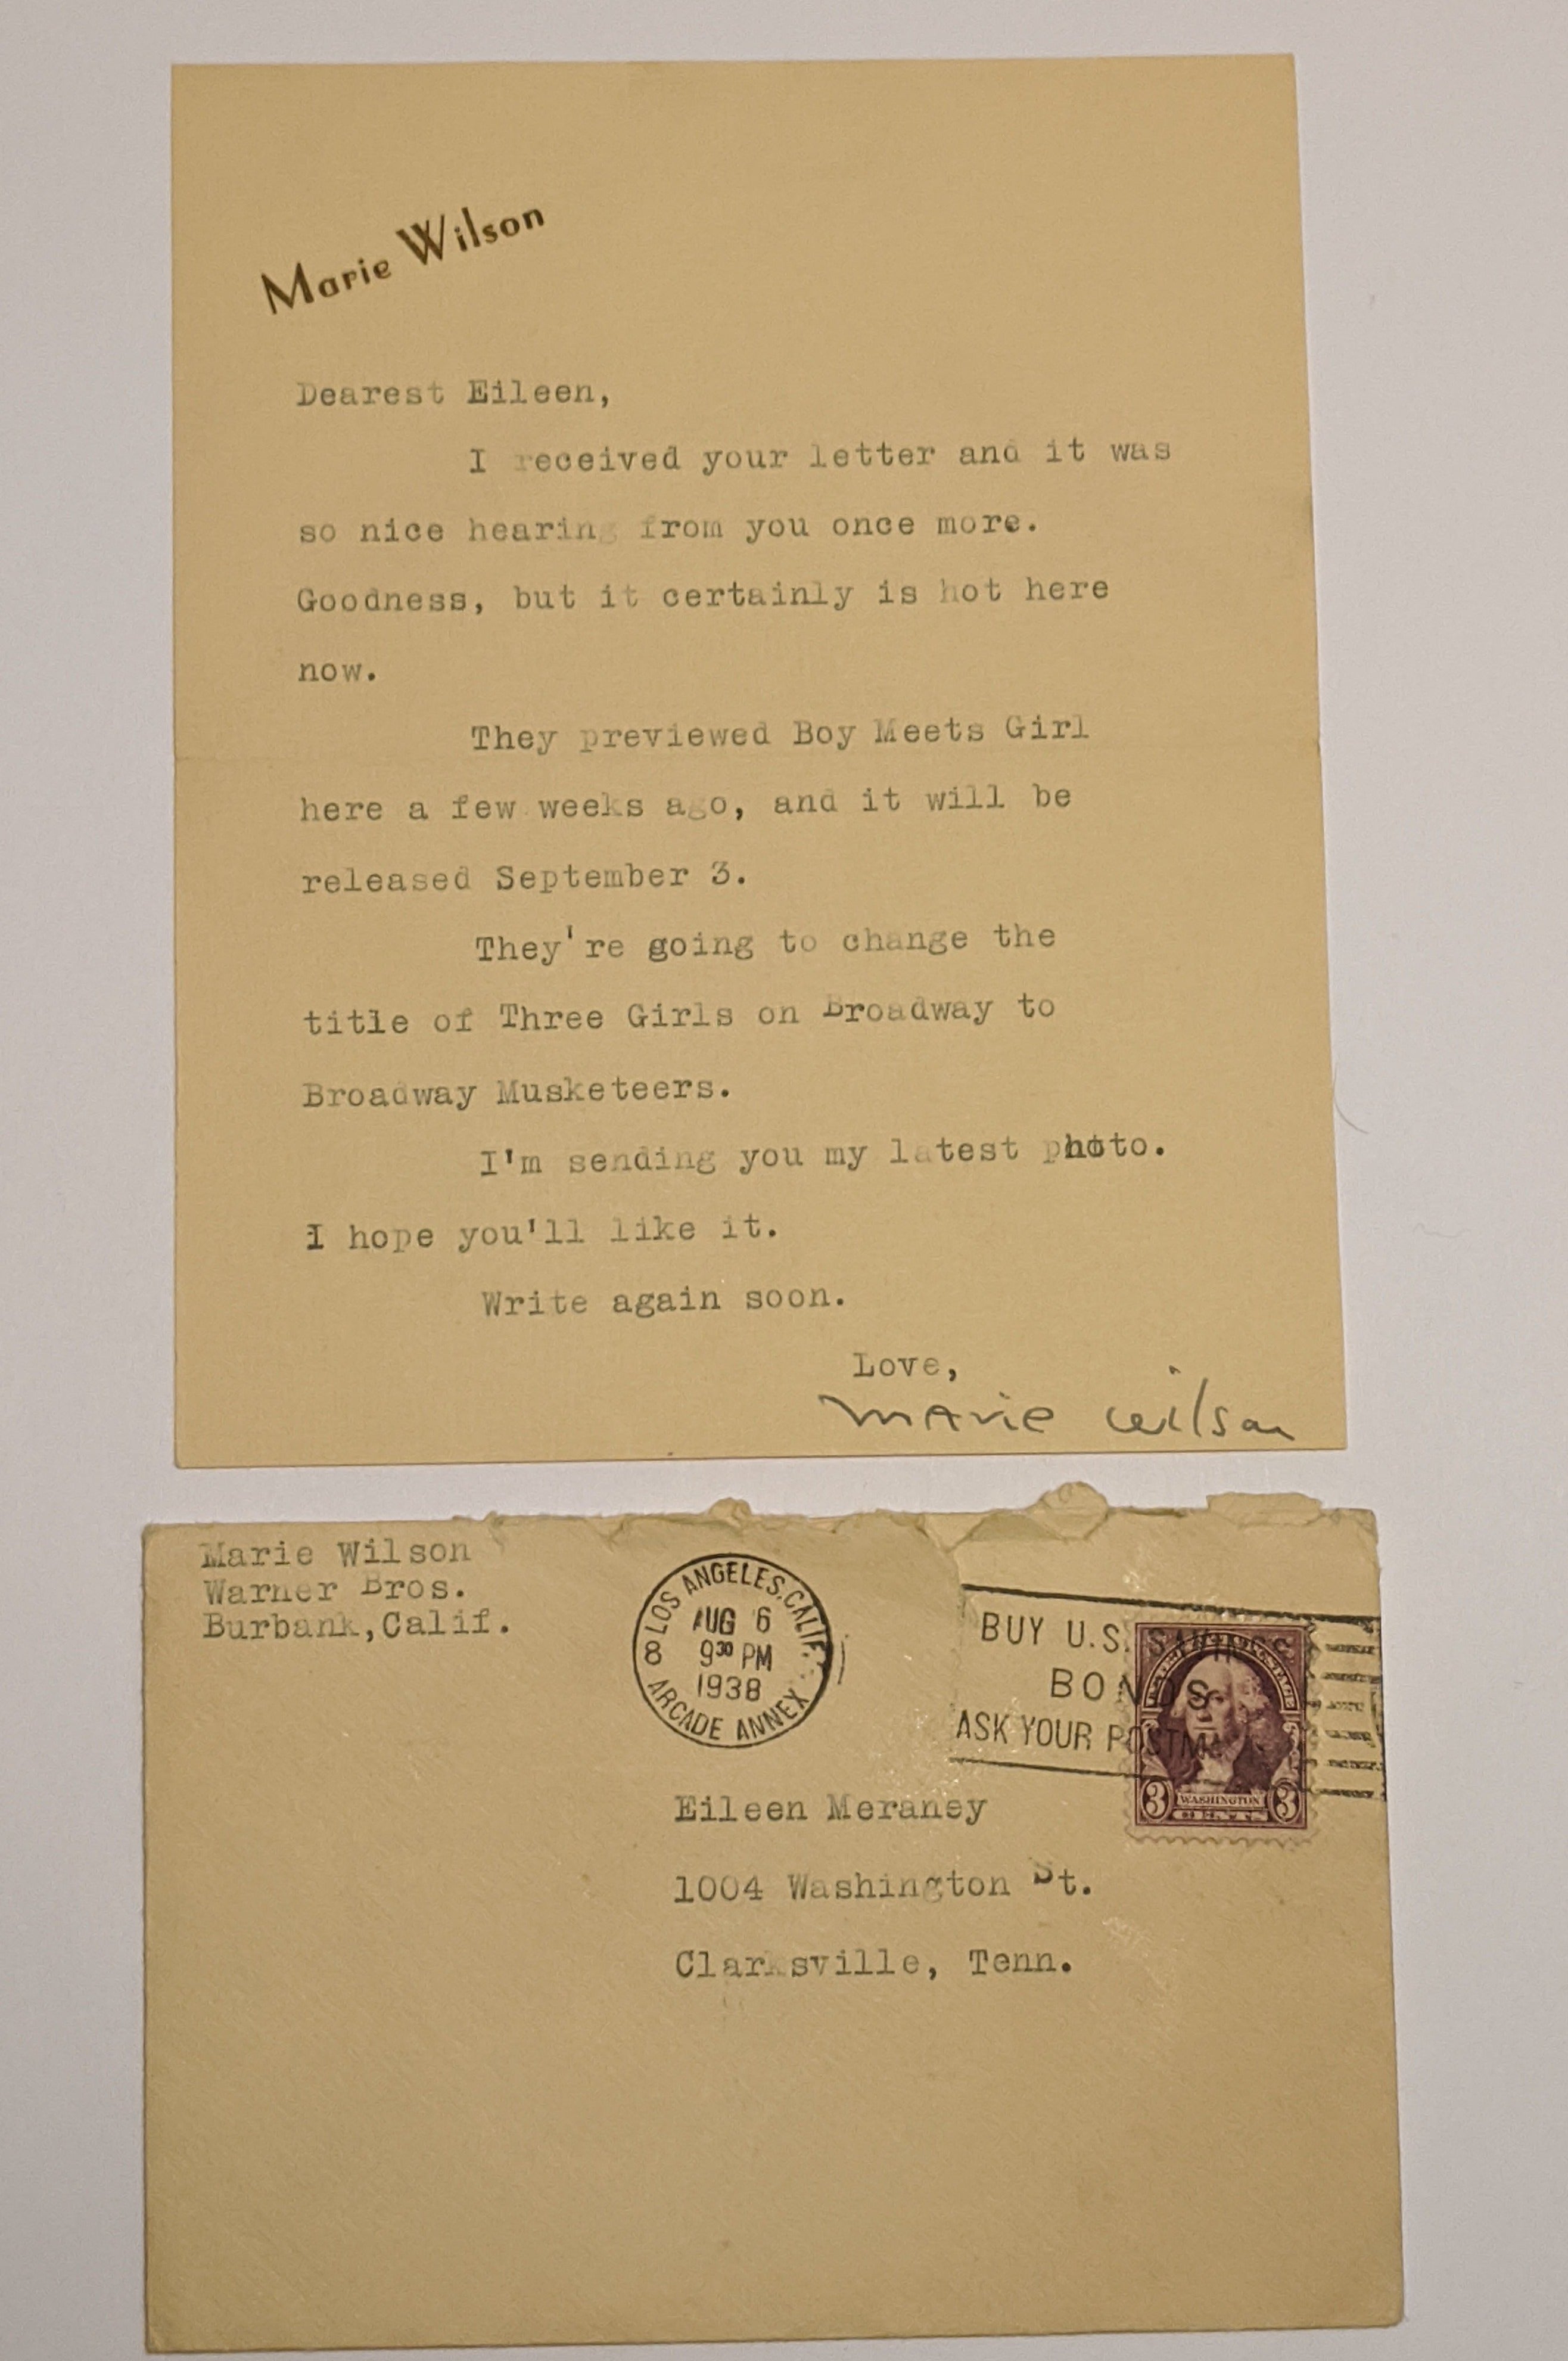 Marie Wilson
Dearest Eileen,
I received your letter and it was
so nice hearing from you once more.
Goodness, but it certainly is hot here
now.
They previewed Boy Meets Girl
here a few weeks ago, and it will be
released September 3.
They're going to change the
title of Three Girls on Broadway to
Broadway Musketeers.
I'm sending you my latest photo.
I hope you'll like it.
Write again soon.
Love,
Marie Wilson
Marie Wilson
Warner Bros.
Burbank,Calif.
LOS ANGELES, CALIF.
AUG 6
9 30 PM
1938
8
ARCADE ANNEX
BUY U.S. SAVINGS
BONDS
ASK YOUR POSTMASTER
3 WASHINGTON 3
Eileen Meraney
1004 Washington St.
Clarksville, Tenn.